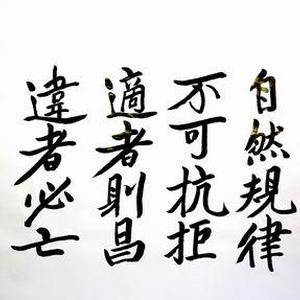 自然規律
不可抗拒
適者則昌
違者必亡